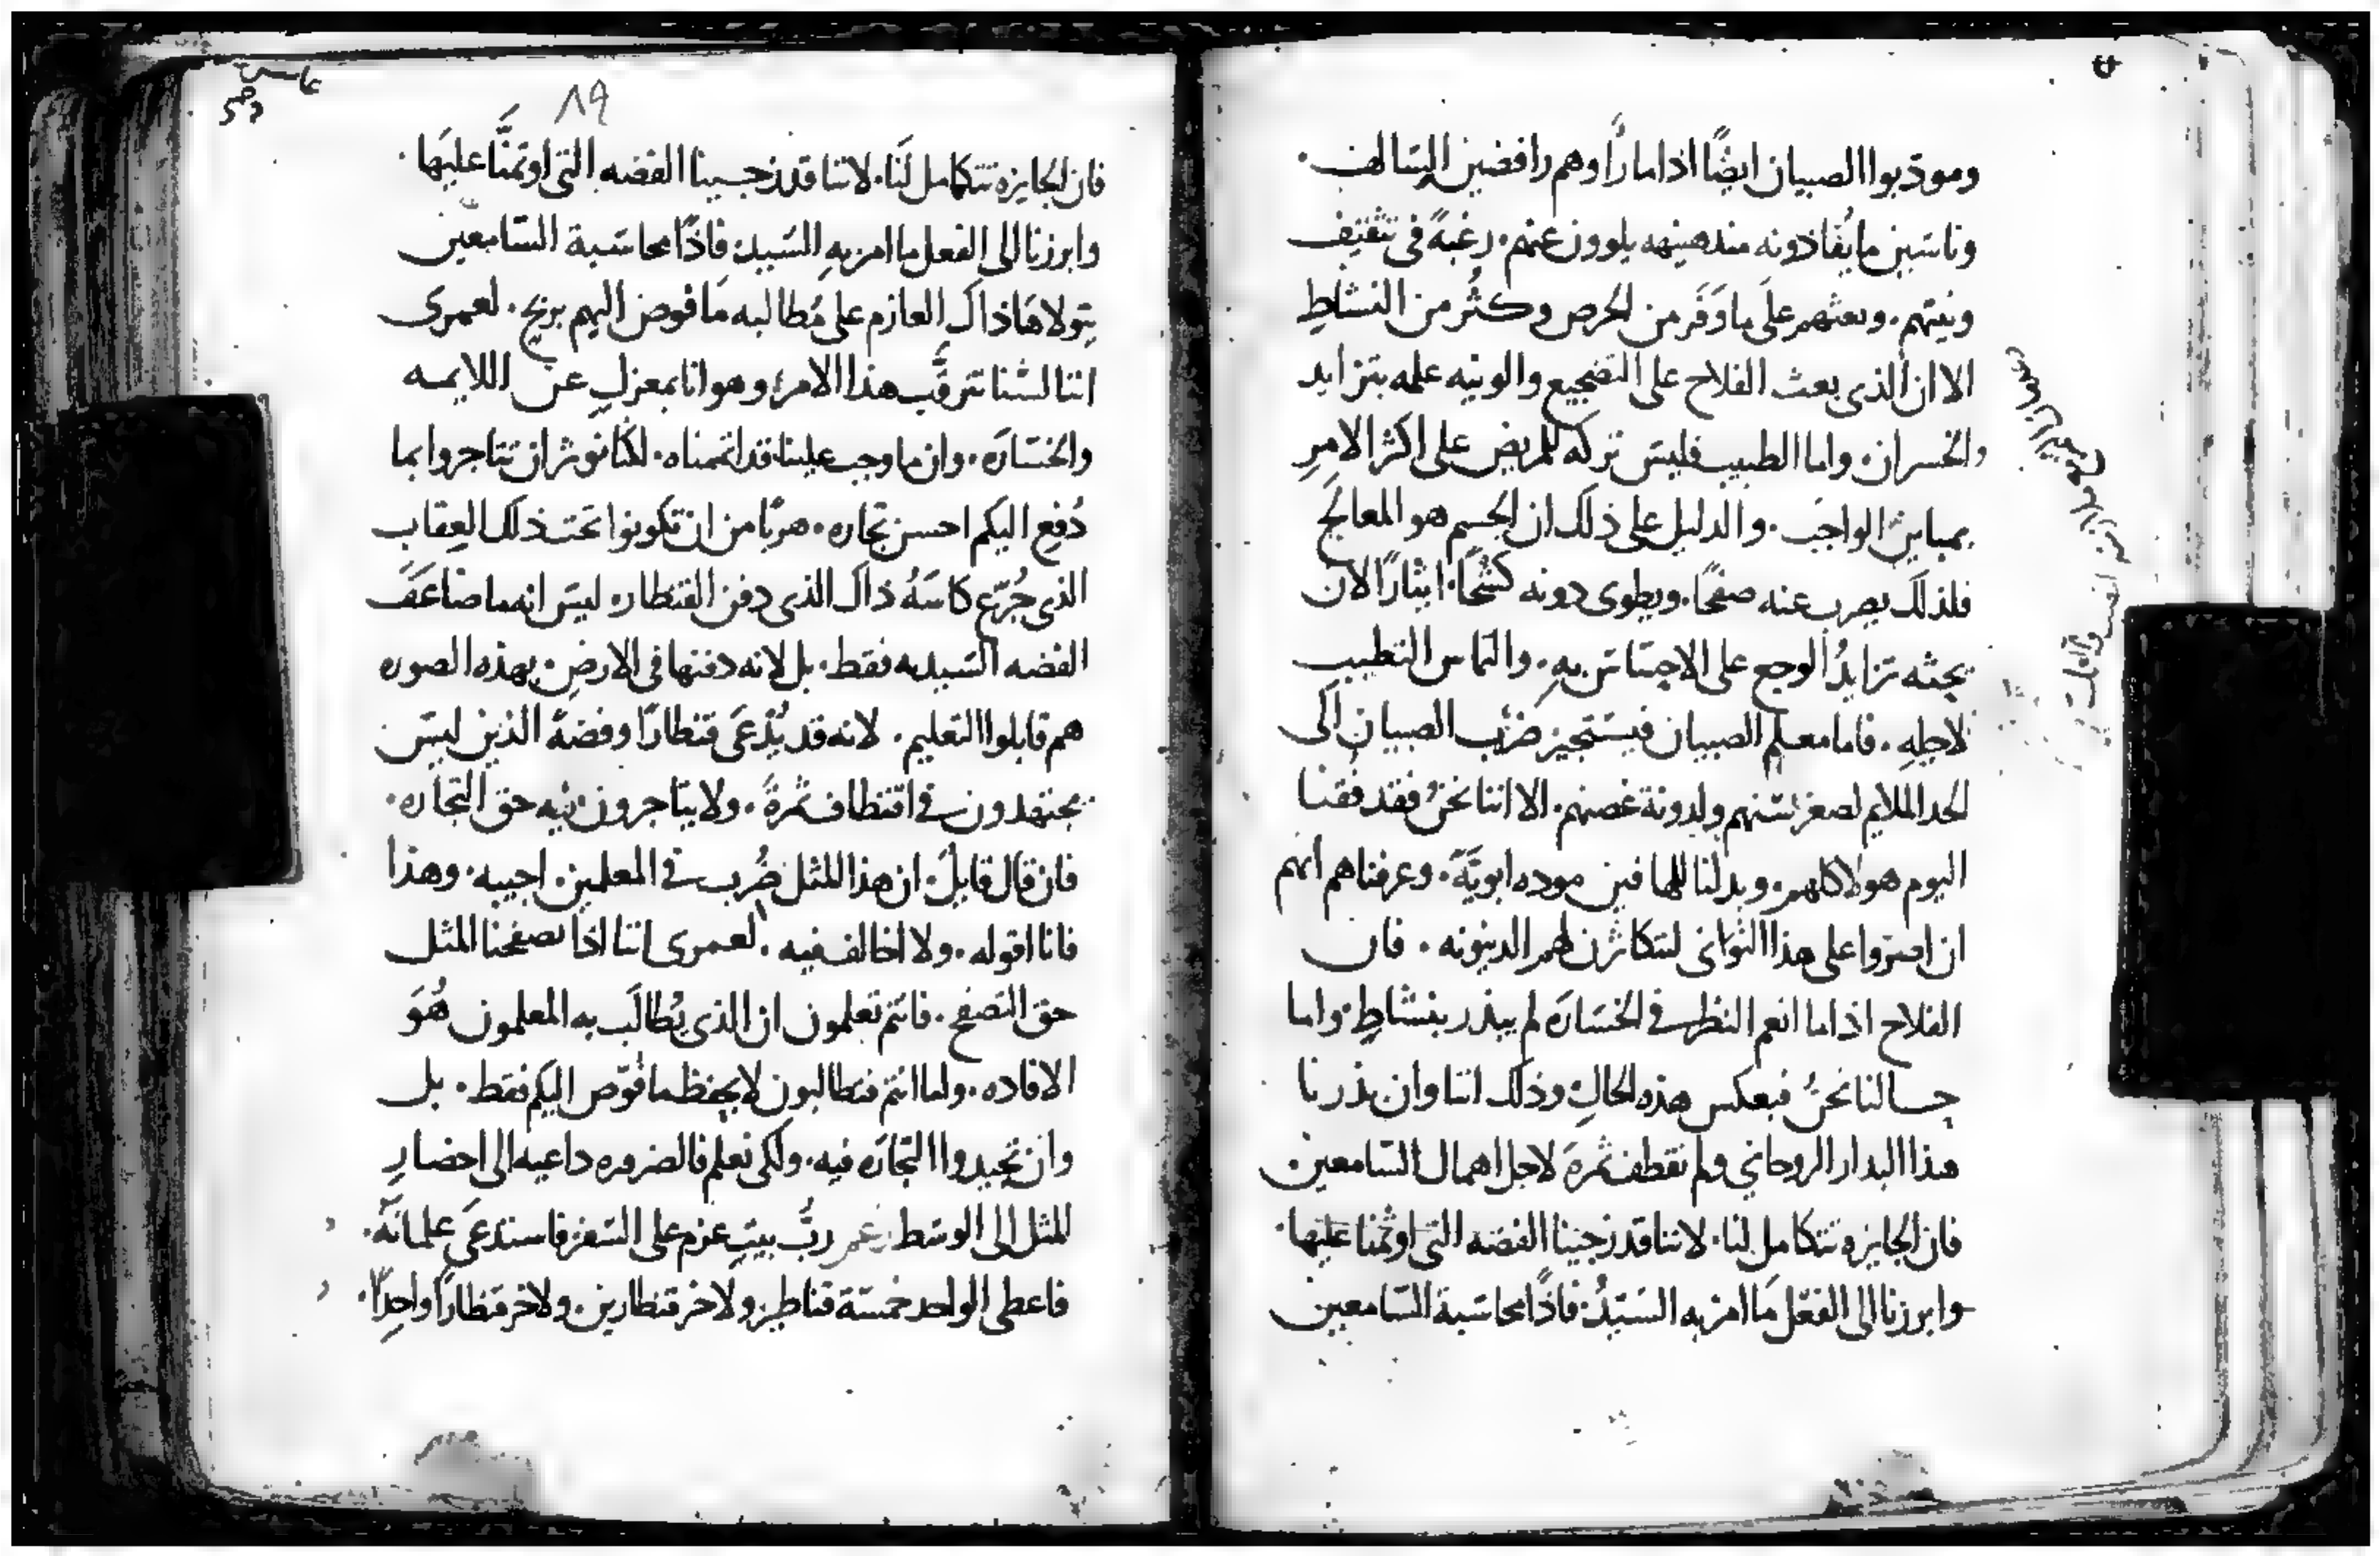 ومودبوا الصبيان ايضًا اذا ما راًوهم رافضين السالف.
وناسين ما يُفاذونه منذهنيهه يلوون عنهم. رغبةً في تثقيف
ونيتهم. وبعثهم على ما وَفَر من الحرص وكثُر من النشاطِ
الا ان الذي بعث الفلاح على التضجيع والونيه علمه بتزايد
والخسران. واما الطبيب فليس تركه للمريض على اكثر الامرِ
بمباين الواجب. والدليل على ذلك ان الجسم هو المعالَج
فلذلك يضرب عنه صفحًا. ويطوى دونه كشحًا. ايثارًا لان
يحثه تزايدُ الوجع على الاحتساس به. والتماس التطبيب
لاجله. فاما معلم الصبيان فيستجيز ضرب الصبيان الى
الحد الملايم لصغر سنهم ولدونة غصنهم. الا اننا نحنُ فقد فُقنا
اليوم هولا كلهم. وبدلنا للهافين موده ابويّةً. وعرفناهم انهم
ان اصروا على هذا التواني لتتكاثرن لهم الدينونه. فان
الفلاح اذا ما انعم النظر في الخسارَه لم يبذر بنشاطٍ. واما
حالنا نحنُ فبعكس هذه الحالِ وذلك اننا وان بذرنا
هذا البدار الروحاني ولم نقطف ثمرةً لاجل اهمال السامعين.
فان الجايزه تتكامل لنا. لاننا قد زجينا الفضه التي اوتمنا عليها.
وابرزنا الى الفعل مَا امر به السَيّدُ. فاذًا محاسبة السامعين
عاشر
دهى
٨٩
فان الجايزه تتكامل لَنا. لاننا قد زجينا الفضه التي اوتمنَّا عليَها.
وابرزنا الى الفعل ما امر بهِ السَيد. فاذًا محاسَبة السَامعين
يتولاهَا ذاك العازم على مُطالبه مَا فوض اليهم بربح. لعمرى
اننا لسنا نترقَّب هذا الامر. وهوانا بمعزلٍ عن اللايمه
والخسَارَه. وان ما وجب علينا قد اتممناه. لكنا نوثر ان تتاجروا بما
دُفع اليكم احسن تجاره. هربًا من ان تكونوا تحت ذلك العِقابِ
الذي جُرّع كاسَهُ ذاك الذي دفن القنطار. ليسَ انه ما ضاعَفَ
الفضه السَيديه فقط. بل لانه دفنها في الارضِ. بهذه الصوره
هم قابلوا التعليم. لانه قد يُدعَى قنطارًا وفضةً الذين ليسَ
يجتهدون في اقتطاف ثمرةً. ولا يتاجرون فيه حق التجاره.
فان قال قايلٌ. ان هذا المثل ضُرب في المعلمين. اجيبه. وهذا
فانا اقوله. ولا اخالف فيه. لعمرى اننا اذا تصفحنا المثل
حق التصفح. فانتم تعلمون ان الذي يُطالَب به المعلمون هُوَ
الافاده. واما انتم فتطالبون لا بحفظ ما فوّض اليكم فقط. بل
وان تجيدوا التجارَه فيه. ولكى نعلم فالضروره داعيه الى احضارِ
المثل الى الوسَط زعم ربُّ بيتٍ عزم على السَفر فاستدعَى غلمانَهُ.
فاعطى الواحد خمسَة قناطير ولاخر قنطارين. ولاخر قنطارًا واحِدًا.